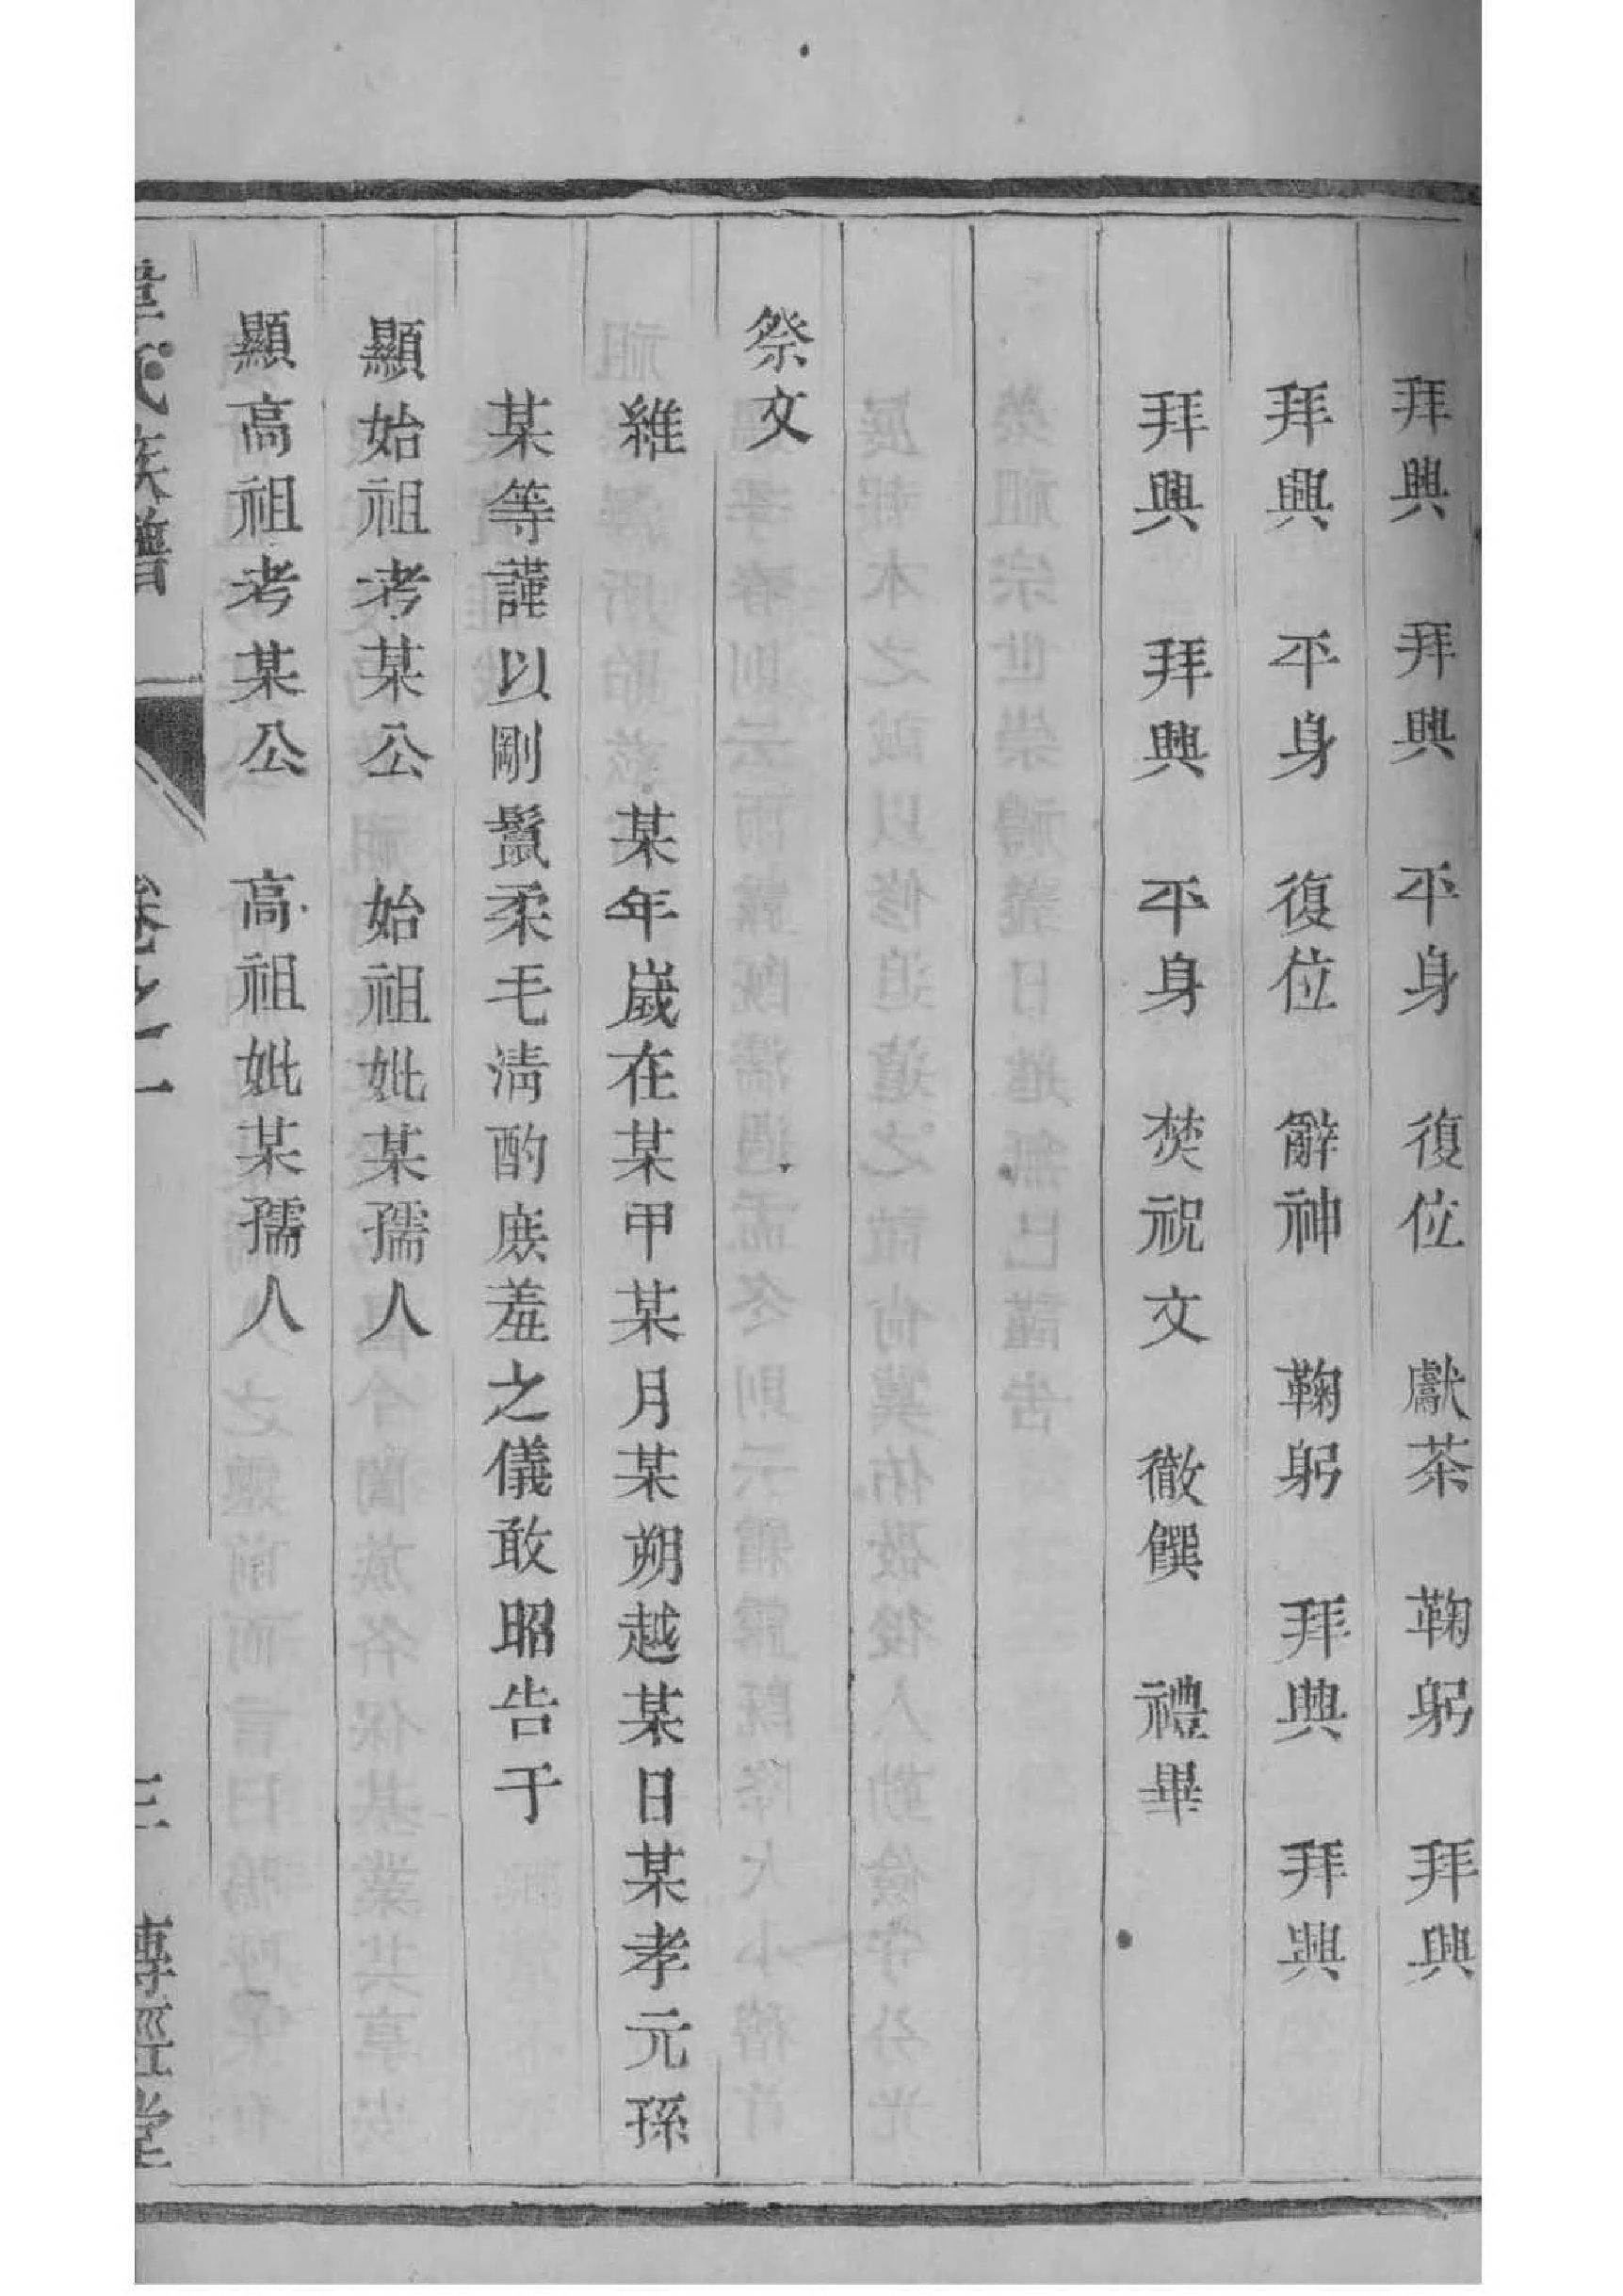 拜興　拜興　平身　復位　獻茶　鞠躬　拜興
拜興　平身　復位　辭神　鞠躬　拜興　拜興
拜興　拜興　平身　焚祝文　徹饌　禮畢
祭文
維　某年歲在某甲某月某朔越某日某孝元孫
某等謹以剛鬣柔毛清酌庶羞之儀敢昭告于
顯始祖考某公　始祖妣某孺人
顯高祖考某公　高祖妣某孺人
韋氏族譜　卷之一　三　傳經堂